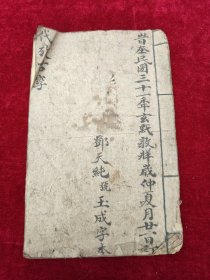 民國三十一年玄黓敦牂歲仲夏月廿一日
鄧天純號玉成字本